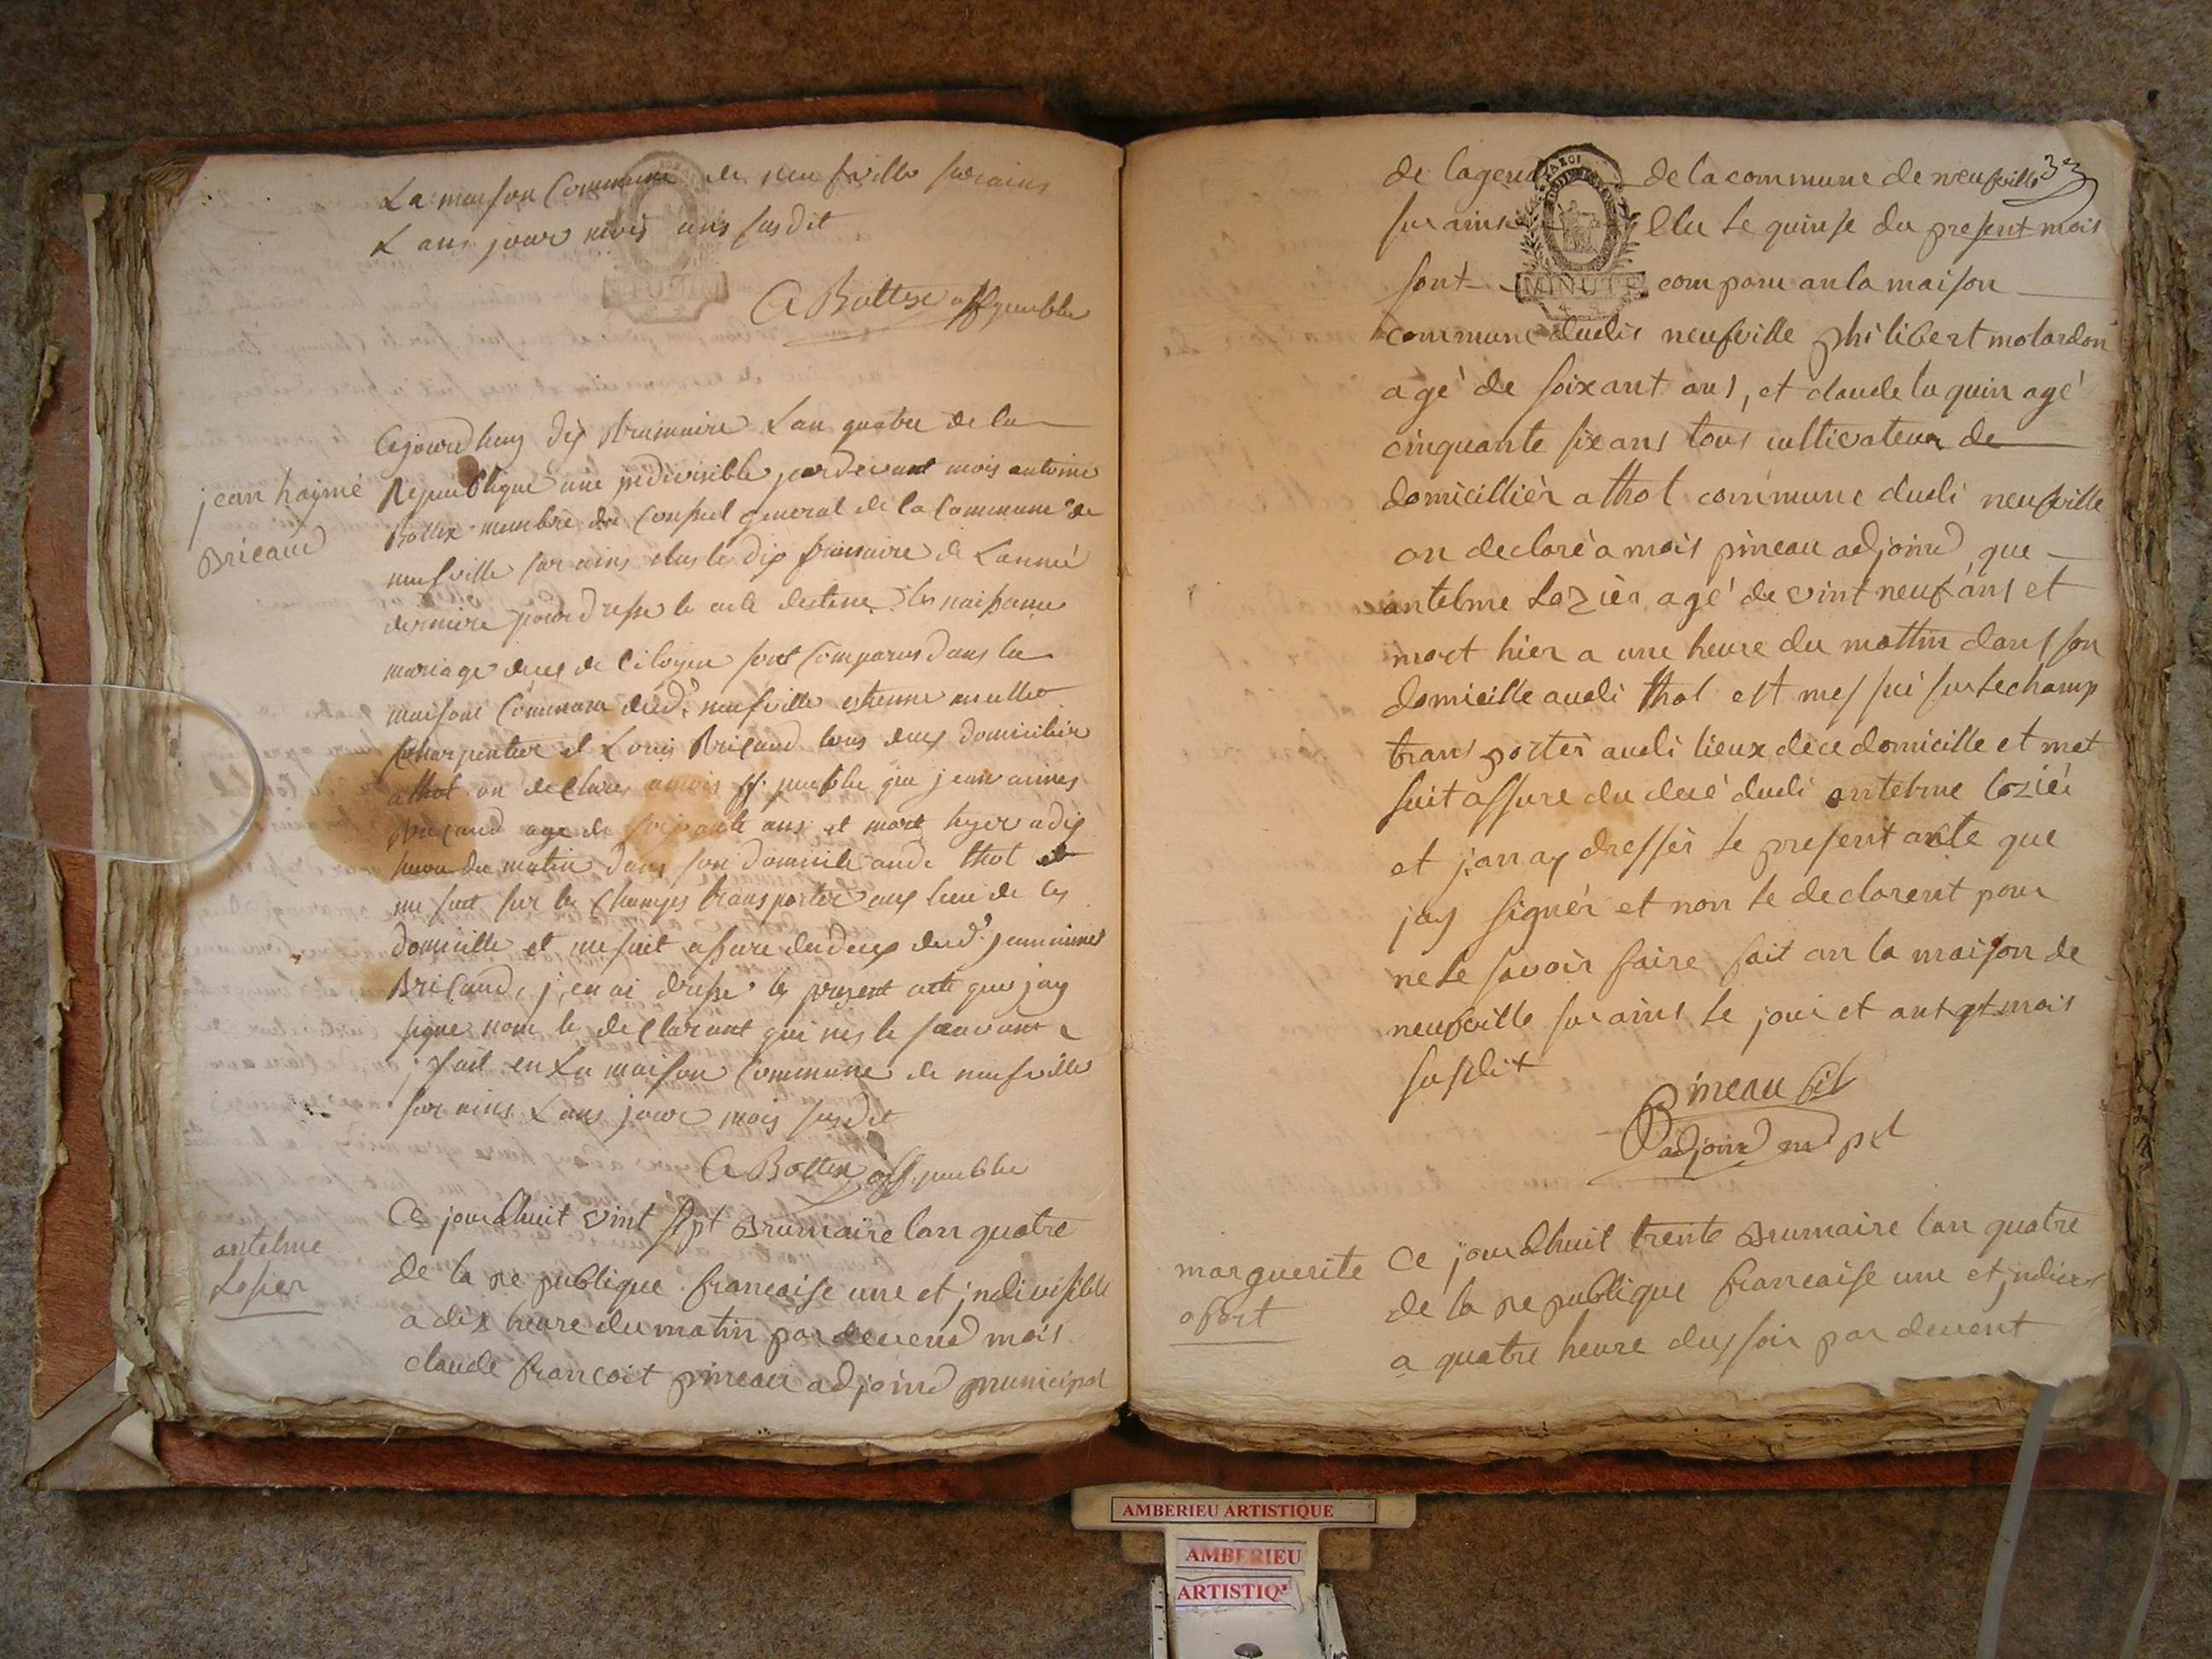 La maison Commune de neufville surains
L ans jour mois ans susdit
A Bottex off publle
jean haymé
Bricaud
Cejourdhuy dix Brumaire Lan quatre de la
Republique une indivisible pardevant mois antoine
Bottex membre du Conseil general de la Commune de
neufville sur ains elus le dix frimaire de Lanneé
derniere pour dresse le acte destine a les naissance
mariage deces de Citoyen sont Comparus dans la
maisons Commune dud. neufville estienne mullet
Charpentier et Louis Bricaud tous deux domicilier
a thol on declares amois off. publle que jean aimes
Bricaud age de soixante ans et mort hyer a dix
heure du matin dans son domicile aude thol et
me suit sur le Champs transporter aux lieu de ces
domicille et me suit assure du deces dud. jeanaimes
Bricaud, j, en ai dresse le present acte que jay
signe nom le declarant qui nes le sauvant
j fait en La maison Commune de neufville
sur ains L ans jour mois susdit
A Bottex off. publle
antelme
Lesier
Ce jourdhuit vint sept Brumaire lan quatre
de la re publique francaise une et jndivisible
a dix heure du matin par devend mois
claude francoit pineau adjoind municipal
33
de lagend de la commune de neufville
sur ains Elu le quinse du present mois
MINUTE
sont comparu an la maison
commune dudis neufville philibert molardon
agé de soixant ans, et claude luquin agé
cinquante six ans tous cultivateur de
domicillièr a thol commune dudi neufville
on declaré a mois pineau adjoind que
antelme Lozièr agé de vint neuf ans et
mort hier a une heure du mattin dans son
domicille audi thol est mes sui sur le champ
trans portér audi lieux de ce domicille et met
suit assure du decé dudi antelme loziér
et j,an ay dressér le present axte que
jay signér et non le declarent pour
ne le savoir faire fait an la maison de
neufville sur ains le jour et ant et mois
susdit
Pineau fil
adjoind m pel
marguerite
ofort
Ce jourdhuit trente Brumaire lan quatre
de la re publique francaise une et jndivis
a quatre heure dus soir par devent
AMBERIEU ARTISTIQUE
AMBERIEU
ARTISTIQ